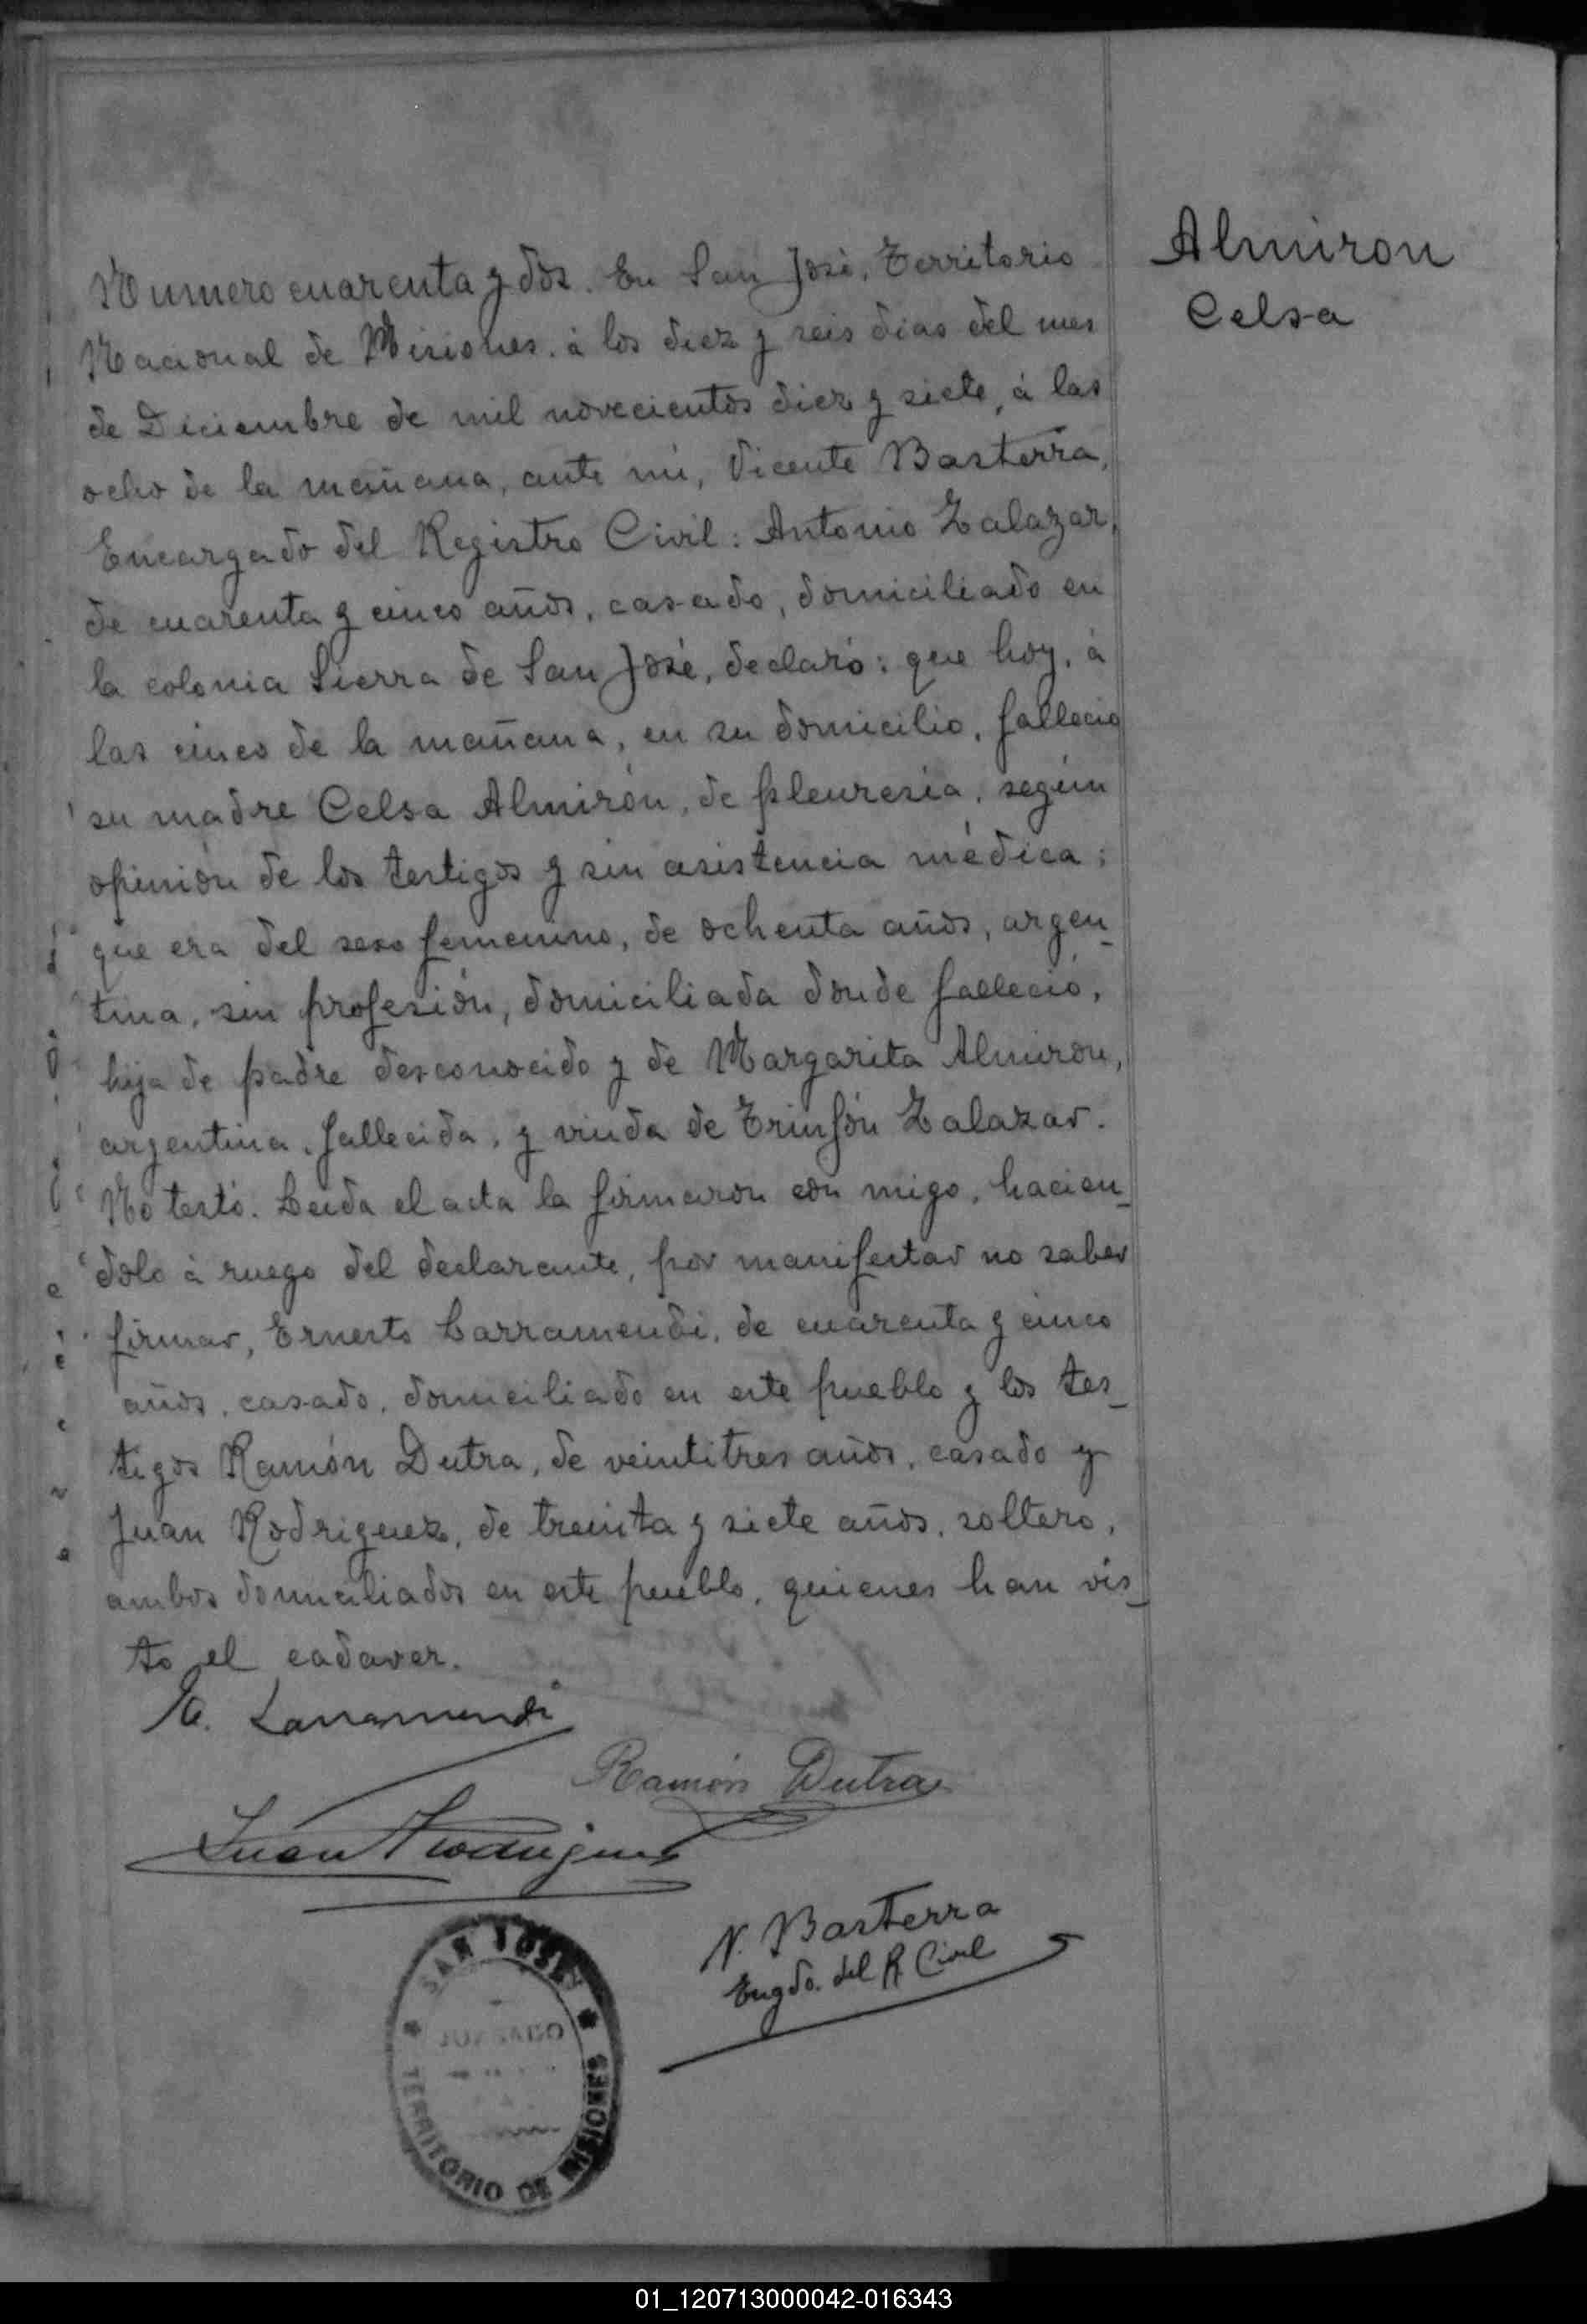 Almiron
Celsa
Numero cuarenta y dos. En San José, Territorio
Nacional de Misiones, á los diez y seis dias del mes
de Diciembre de mil novecientos diez y siete, á las
ocho de la mañana, ante mi, Vicente Basterra,
Encargado del Registro Civil: Antonio Zalazar,
de cuarenta y cinco años, casado, domiciliado en
la colonia Sierra de San José, declaró: que hoy, á
las cinco de la mañana, en su domicilio, falleció
su madre Celsa Almirón, de pleuresia, según
opinión de los testigos y sin asistencia médica;
que era del sexo femenino, de ochenta años, argen-
tina, sin profesión, domiciliada donde falleció,
hija de padre desconocido y de Margarita Almiron,
argentina, fallecida, y viuda de Zalazar.
No testó. Leida el acta la firmaron con migo, hacien-
dolo á ruego del declarante, por manifestar no saber
firmar, Ernesto Larramendi, de cuarenta y cinco
años, casado, domiciliado en este pueblo y los tes-
tigos Ramón Dutra, de veintitres años, casado y
Juan Rodriguez, de treinta y siete años, soltero,
ambos domiciliados en este pueblo, quienes han vis-
to el cadaver.
E. Larramendi
Ramón Dutra
Juan Rodriguez
V. Basterra
Engdo. del R. Civil
SAN JOSE
JUZGADO
TERRITORIO DE MISIONES
01_120713000042-016343